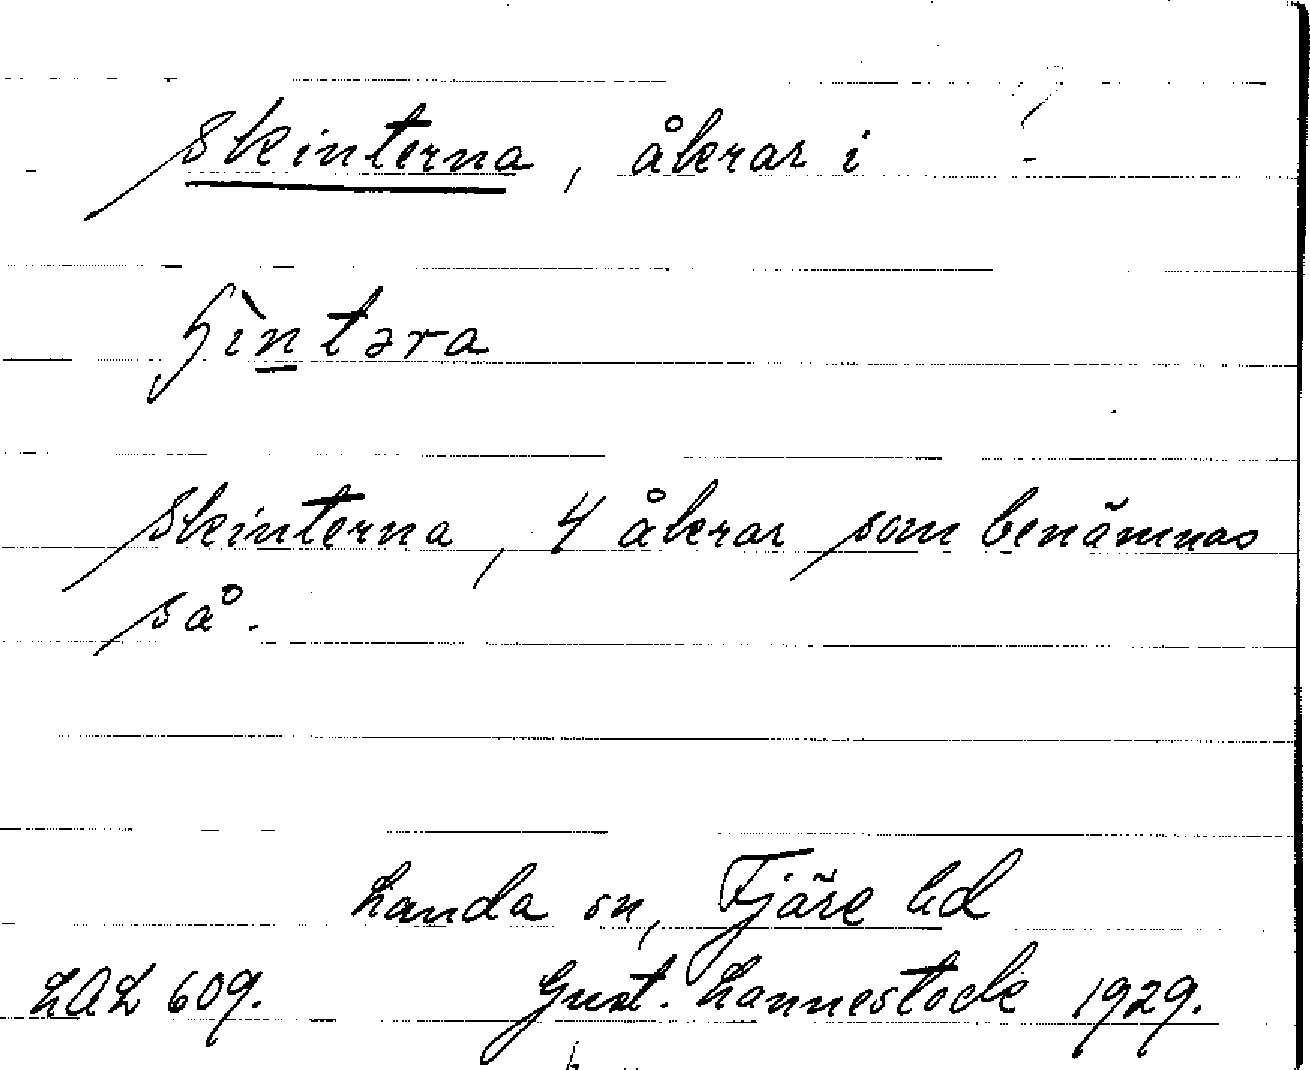 Skinterna, åkrar i ?
ʃìntəra
Skinterna, 4 åkrar som benämnas
så.
Landa sn, Fjäre hd
LAL 609. Gust. Lannestock 1929.